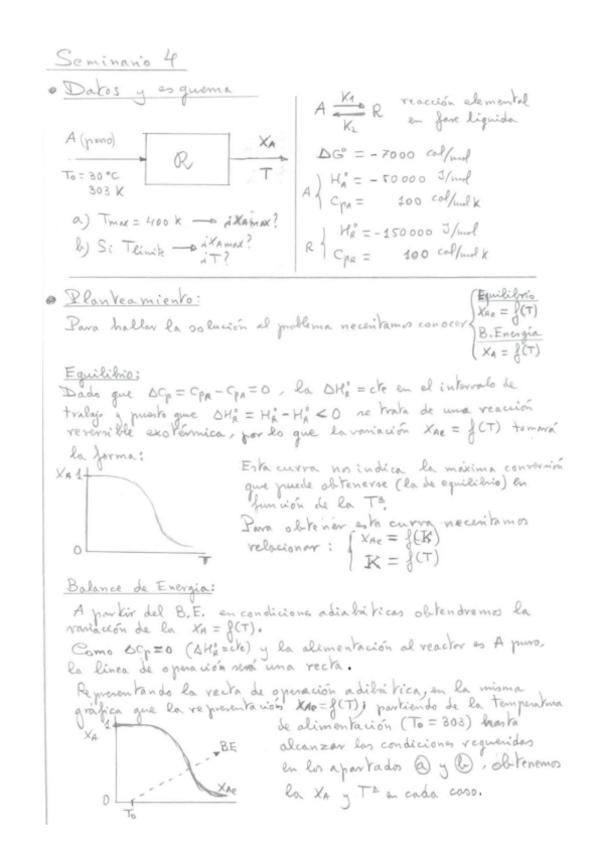 Seminario 4
• Datos y esquema
A (puro)
R
XA
T
To = 30 °C
303 K
a) Tmax = 400 K → ¿XAmax?
b) Si Tlimite → ¿XAmax?
¿T?
A ⇌ R reacción elemental
K1
K2
en fase líquida
ΔG° = -7000 cal/mol
A { H°A = -50000 J/mol
CPA = 100 cal/mol K
R { H°R = -150000 J/mol
CPR = 100 cal/mol K
• Planteamiento:
Para hallar la solución al problema necesitamos conocer
Equilibrio
XAe = f(T)
B. Energía
XA = f(T)
Equilibrio:
Dado que ΔCp = CPR - CPA = 0, la ΔH°R = cte en el intervalo de
trabajo y puesto que ΔH°R = H°R - H°A < 0 se trata de una reacción
reversible exotérmica, por lo que la variación XAe = f(T) tomará
la forma:
XA 1
0
T
Esta curva nos indica la máxima conversión
que puede obtenerse (la de equilibrio) en
función de la Tª.
Para obtener esta curva necesitamos
relacionar : { XAe = f(K)
K = f(T)
Balance de Energía:
A partir del B.E. en condiciones adiabáticas obtendremos la
variación de la XA = f(T).
Como ΔCp=0 (ΔH°R=cte) y la alimentación al reactor es A puro,
la línea de operación será una recta.
Representando la recta de operación adibática, en la misma
gráfica que la representación XAe=f(T); partiendo de la temperatura
de alimentación (To = 303) hasta
alcanzar las condiciones requeridas
en los apartados a y b, obtenemos
la XA y Tª en cada caso.
1
XA
BE
XAe
0
To